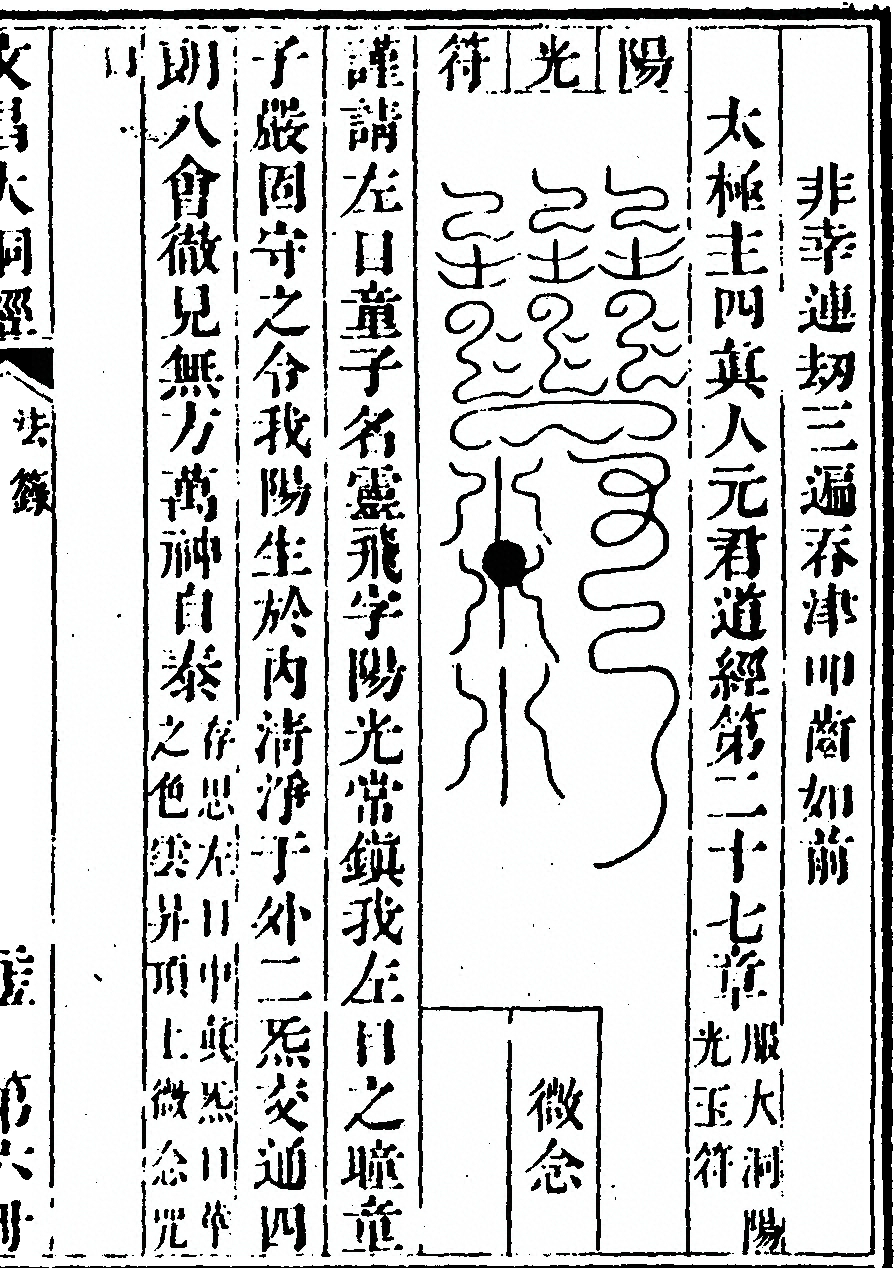 非幸連劫三遍吞津叩齒如前
太極主四眞人元君道經第二十七章
服大洞陽
光玉符
陽光符
微念
謹請左目童子名靈飛字陽光常鎭我左目之瞳童
子嚴固守之令我陽生於內清淨于外二炁交通四
朗八會徹見無方萬神自泰
存思左目中眞炁日華
之色雲昇頂上微念咒
曰
文昌大洞經
法籙
第六冊